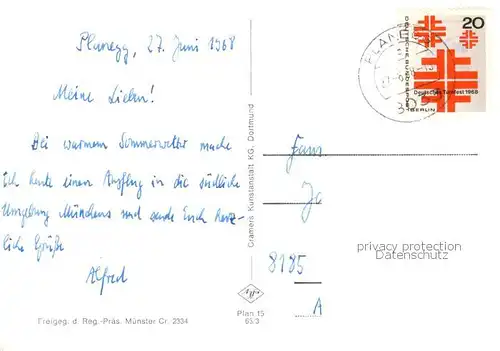 Planegg, 27. Juni 1968
Meine Lieben!
Bei warmem Sommerwetter mache
ich heute einen Ausflug in die südliche
Umgebung Münchens und sende Euch herz-
liche Grüße
Alfred
Freigeg. d. Reg.-Präs. Münster Cr. 2334
Cramers Kunstanstalt KG, Dortmund
Plan 15
65/3
PLANEGG
20
DEUTSCHE BUNDESPOST
Deutsches Turnfest 1968
BERLIN
Fam
8185
A
privacy protection
Datenschutz